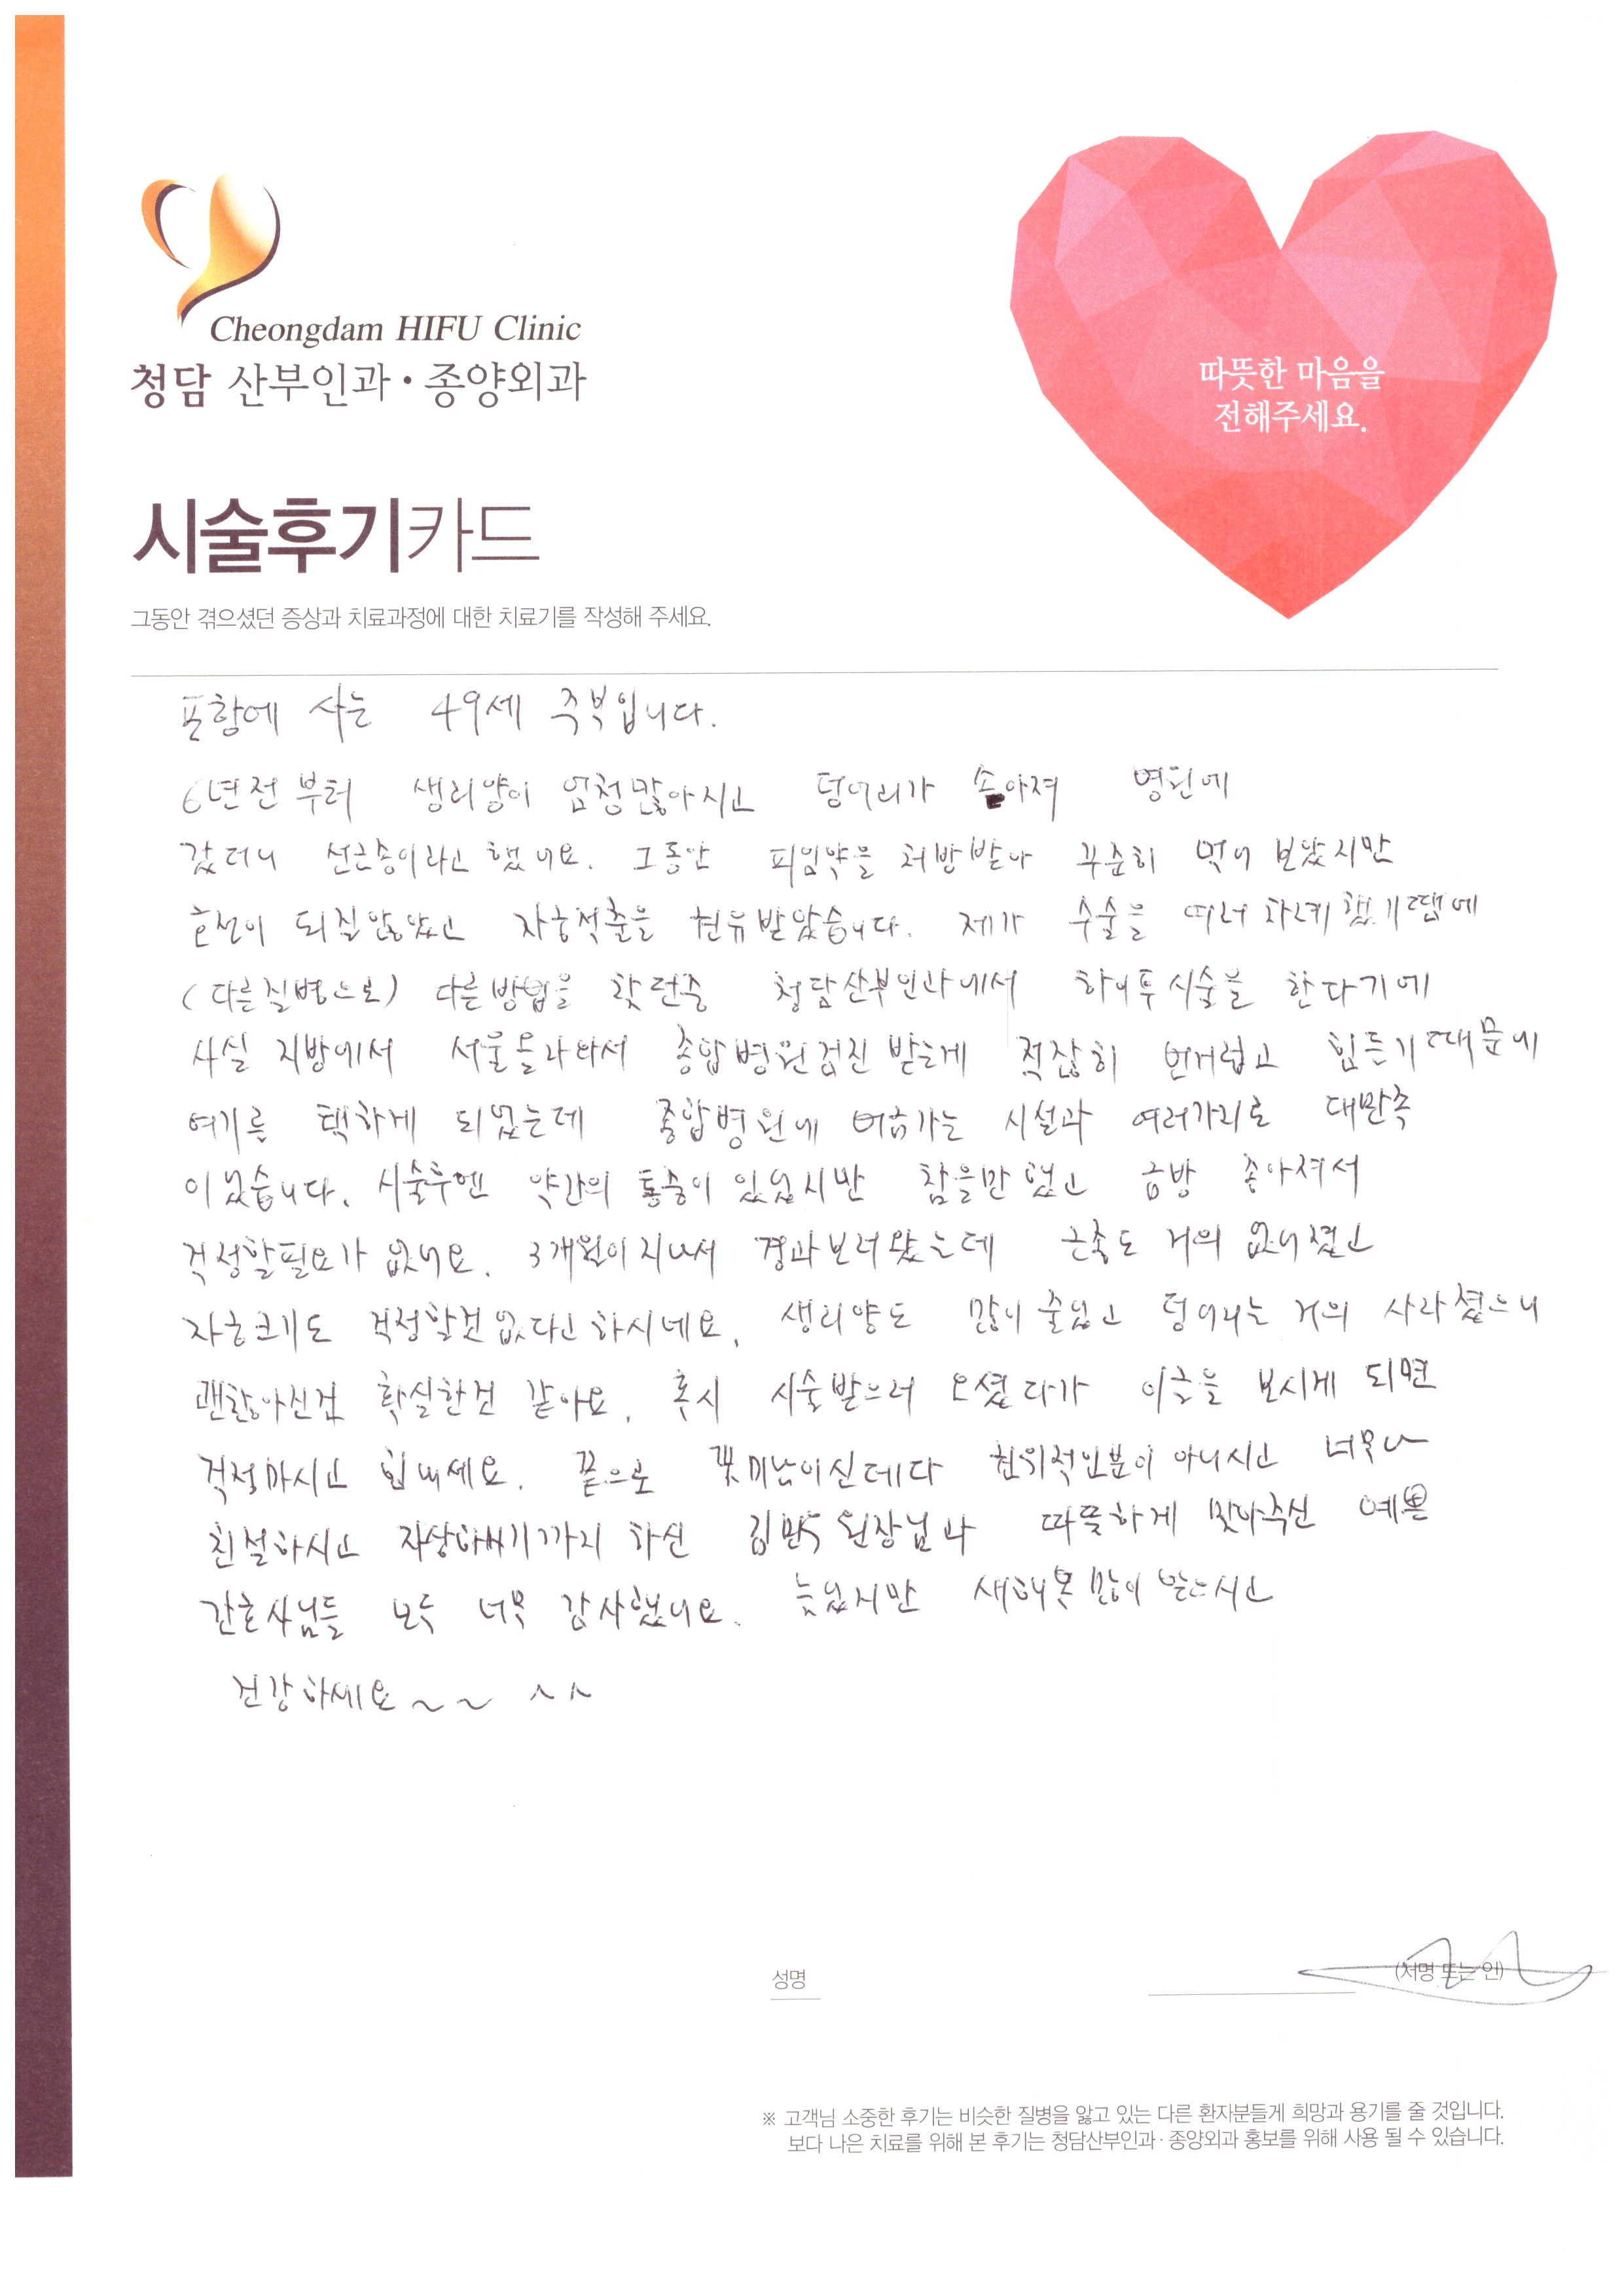 Cheongdam HIFU Clinic
청담 산부인과 · 종양외과
따뜻한 마음을
전해주세요.
시술후기카드
그동안 겪으셨던 증상과 치료과정에 대한 치료기를 작성해 주세요.
포항에 사는 49세 주부입니다.
6년전 부터 생리양이 엄청많아지고 덩어리가 쏟아져 병원에
갔더니 선근증이라고 했어요. 그동안 피임약을 처방받아 꾸준히 먹어 보았지만
호전이 되질않았고 자궁적출을 권유받았습니다. 제가 수술을 여러 차례 했기땜에
(다른질병으로) 다른방법을 찾던중 청담산부인과에서 하이푸시술을 한다기에
사실 지방에서 서울올라와서 종합병원검진 받는게 적잖히 번거럽고 힘든기때문에
여기를 택하게 되었는데 종합병원에 버금가는 시설과 여러가지로 대만족
이었습니다. 시술후엔 약간의 통증이 있었지만 참을만 했고 금방 좋아져서
걱정할필요가 없어요. 3개월이 지나서 경과보러왔는데 근종도 거의 없어졌고
자궁크기도 걱정할것 없다고 하시네요. 생리양도 많이 줄었고 덩어리는 거의 사라졌으니
괜찮아진건 확실한건 같아요. 혹시 시술받으러 오셨다가 이글을 보시게 되면
걱정마시고 힘내세요. 끝으로 꽃미남이신데다 권위적인분이 아니시고 너무나
친절하시고 자상하시기까지 하신 김민수 원장님과 따뜻하게 맞아주신 예쁜
간호사님들 모두 너무 감사했어요. 늦었지만 새해복 많이 받으시고
건강하세요~~ ^^
성명
(서명 또는 인)
※ 고객님 소중한 후기는 비슷한 질병을 앓고 있는 다른 환자분들게 희망과 용기를 줄 것입니다.
보다 나은 치료를 위해 본 후기는 청담산부인과 · 종양외과 홍보를 위해 사용 될 수 있습니다.